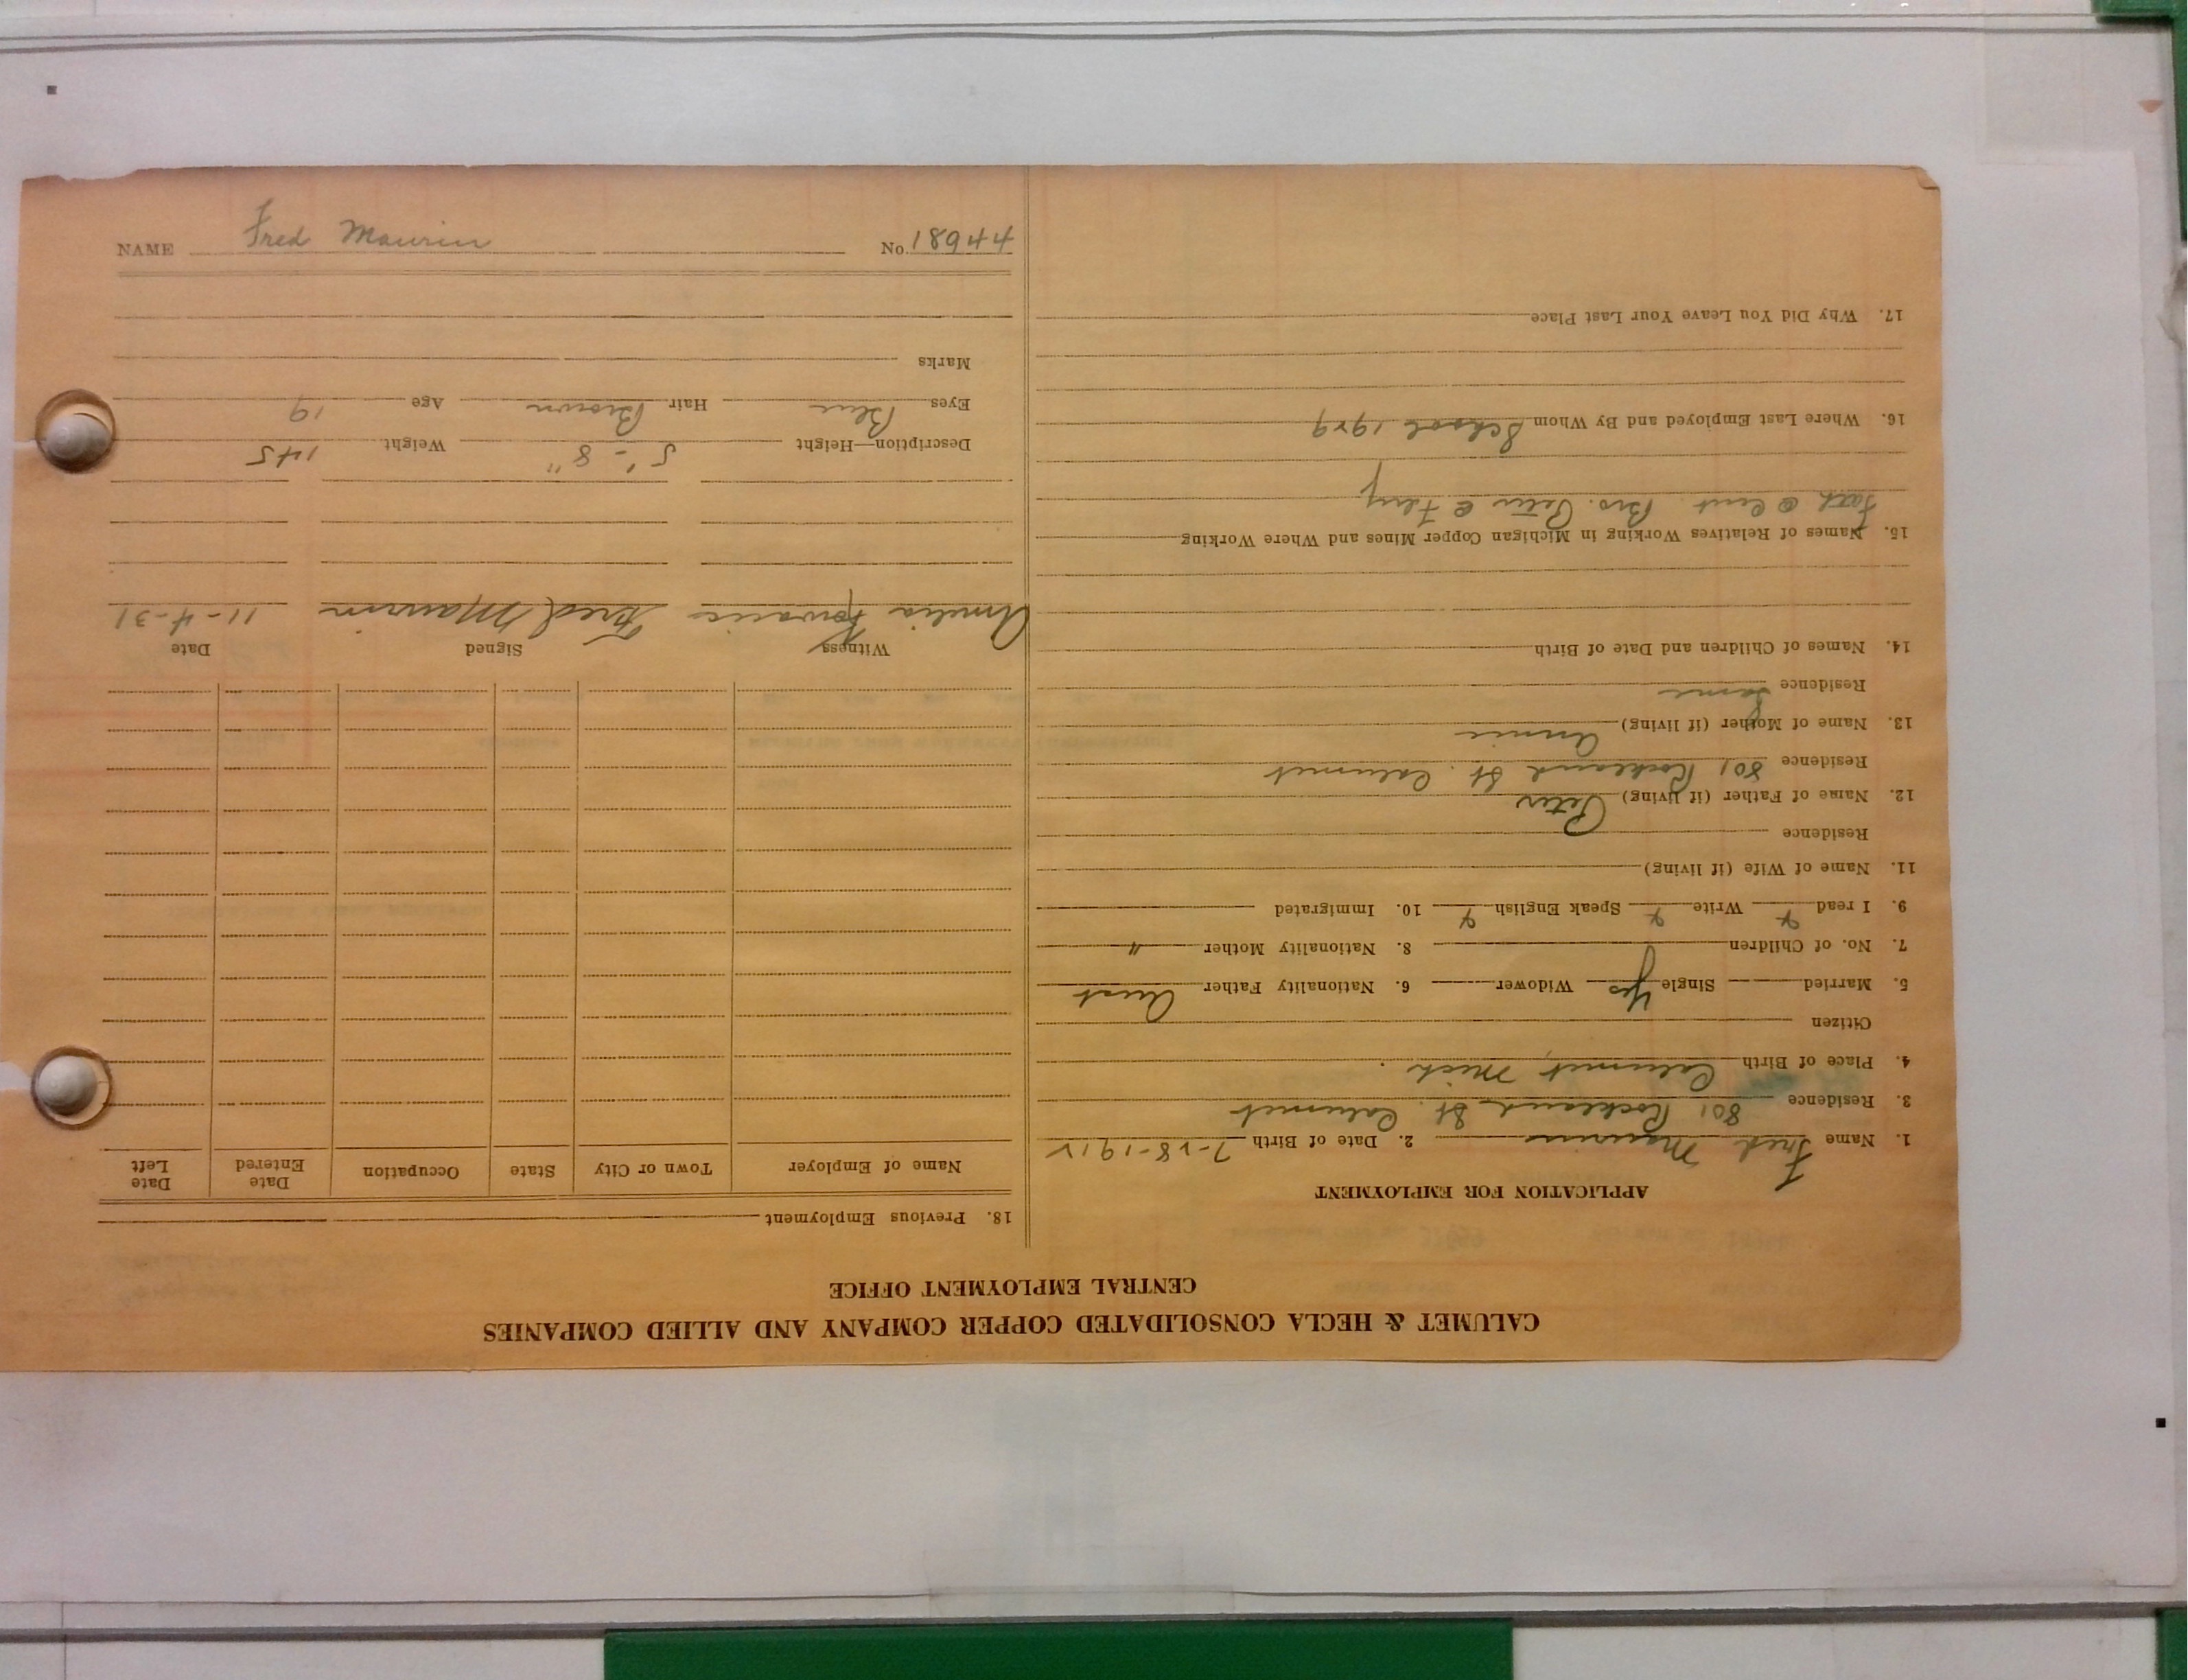 CALUMET & HECLA CONSOLIDATED COPPER COMPANY AND ALLIED COMPANIES
CENTRAL EMPLOYMENT OFFICE
APPLICATION FOR EMPLOYMENT
1. Name Fred Maurin 2. Date of Birth 7-28-1912
3. Residence 801 Rockland St. Calumet
4. Place of Birth Calumet, Mich.
Citizen
5. Married Single Yes Widower 6. Nationality Father Aust
7. No. of Children 8. Nationality Mother "
9. I read Y Write Y Speak English Y 10. Immigrated
11. Name of Wife (if living)
Residence
12. Name of Father (if living) Peter
Residence 801 Rockland St. Calumet
13. Name of Mother (if living) Annie
Residence Same
14. Names of Children and Date of Birth
15. Names of Relatives Working in Michigan Copper Mines and Where Working
Fath @ Bro. Peter @
16. Where Last Employed and By Whom School 1929
17. Why Did You Leave Your Last Place
18. Previous Employment
Name of Employer Town or City State Occupation Date Entered Date Left
Witness Signed Date
Amelia Fred Maurin 11-4-31
Description—Height 5'-8" Weight 145
Eyes Blue Hair Brown Age 19
Marks
NAME Fred Maurin No. 18944